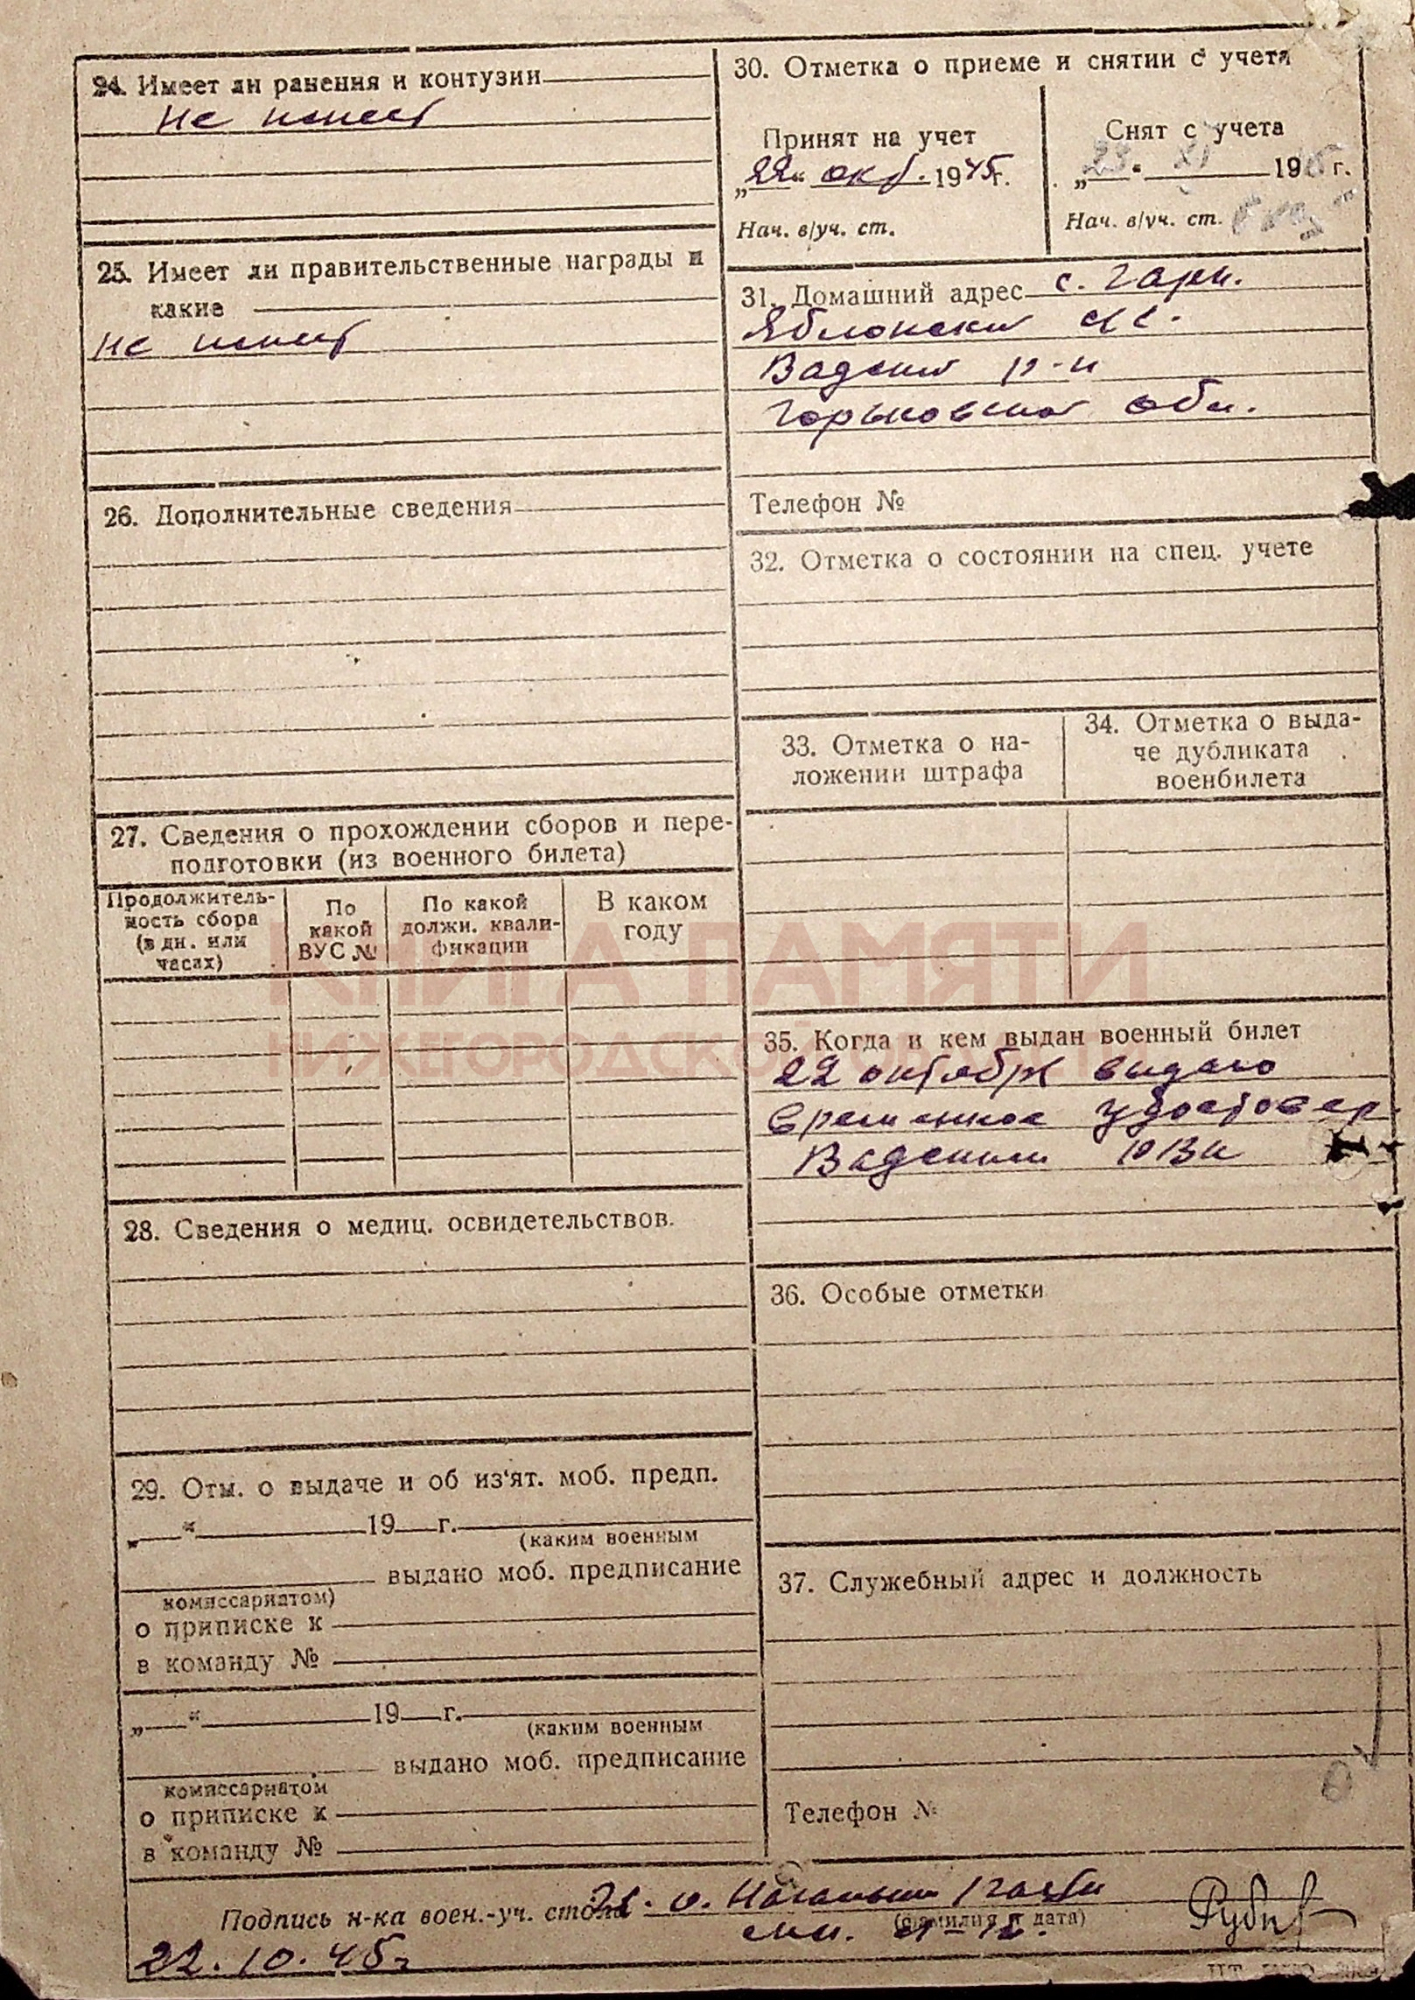 24. Имеет ли ранения и контузии
Не имеет
25. Имеет ли правительственные награды и
какие
Не имеет
26. Дополнительные сведения
27. Сведения о прохождении сборов и пере-
подготовки (из военного билета)
Продолжитель-
ность сбора
(в дн. или
часах)
По
какой
ВУС №
По какой
должн. квали-
фикации
В каком
году
28. Сведения о медиц. освидетельствов.
29. Отм. о выдаче и об из'ят. моб. предп.
„ “ 19 г.
(каким военным
выдано моб. предписание
комиссариатом)
о приписке к
в команду №
„ “ 19 г.
(каким военным
выдано моб. предписание
комиссариатом
о приписке к
в команду №
30. Отметка о приеме и снятии с учета
Принят на учет
„22“ окт. 1945г.
Нач. в/уч. ст.
Снят с учета
„23“ XI 19 г.
Нач. в/уч. ст.
31. Домашний адрес с. Гари.
Яблонский с/с.
Вадский р-н
Горьковской обл.
Телефон №
32. Отметка о состоянии на спец. учете
33. Отметка о на-
ложении штрафа
34. Отметка о выда-
че дубликата
военбилета
КНИГА ПАМЯТИ
НИЖЕГОРОДСКОЙ ОБЛАСТИ
35. Когда и кем выдан военный билет
22 октября выдано
временное удостовер.
Вадским РВК
36. Особые отметки
37. Служебный адрес и должность
Телефон №
Подпись н-ка воен.-уч. стола
(фамилия и дата)
22.10.45г